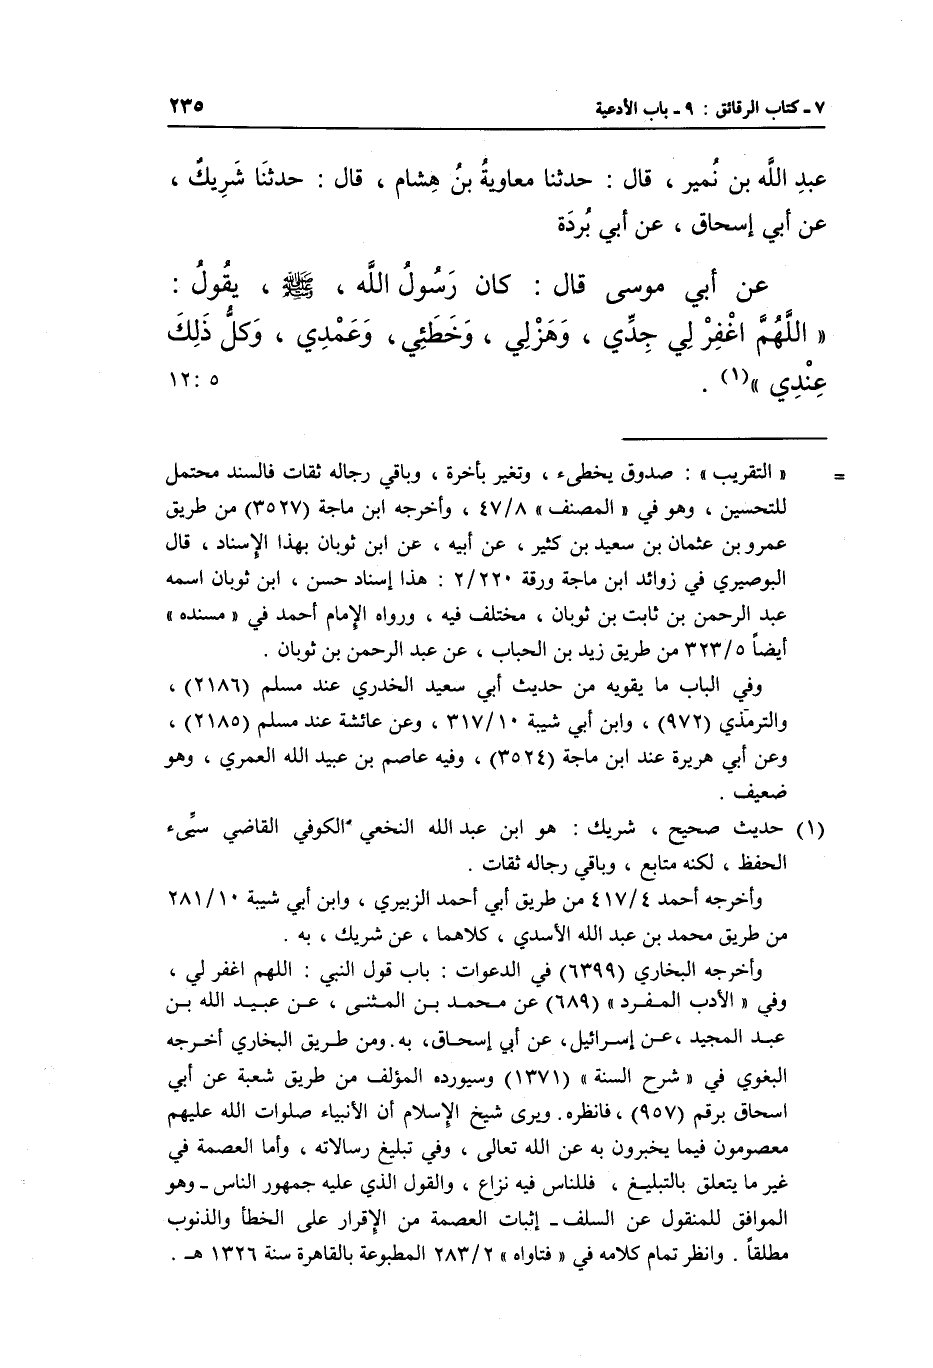 ٧ - كتاب الرقائق : ٩ - باب الأدعية ٢٣٥
عبدِ اللَّه بن نُمير ، قال : حدثنا معاويةُ بنُ هِشام ، قال : حدثنَا شَرِيكٌ ،
عن أبي إسحاق ، عن أبي بُردَة
عن أبي موسى قال : كان رَسُولُ اللَّه ، ﷺ ، يقُولُ :
« اللَّهُمَّ اغْفِرْ لِي جِدِّي ، وَهَزْلِي ، وَخَطَئِي ، وَعَمْدِي ، وَكلُّ ذَلِكَ
عِنْدِي »(١) . ٥ : ١٢
= « التقريب » : صدوق يخطىء ، وتغير بأخرة ، وباقي رجاله ثقات فالسند محتمل
للتحسين ، وهو في « المصنف » ٤٧/٨ ، وأخرجه ابن ماجة (٣٥٢٧) من طريق
عمرو بن عثمان بن سعيد بن كثير ، عن أبيه ، عن ابن ثوبان بهذا الإسناد ، قال
البوصيري في زوائد ابن ماجة ورقة ٢/٢٢٠ : هذا إسناد حسن ، ابن ثوبان اسمه
عبد الرحمن بن ثابت بن ثوبان ، مختلف فيه ، ورواه الإمام أحمد في « مسنده »
أيضاً ٣٢٣/٥ من طريق زيد بن الحباب ، عن عبد الرحمن بن ثوبان .
وفي الباب ما يقويه من حديث أبي سعيد الخدري عند مسلم (٢١٨٦) ،
والترمذي (٩٧٢) ، وابن أبي شيبة ٣١٧/١٠ ، وعن عائشة عند مسلم (٢١٨٥) ،
وعن أبي هريرة عند ابن ماجة (٣٥٢٤) ، وفيه عاصم بن عبيد الله العمري ، وهو
ضعيف .
(١) حديث صحيح ، شريك : هو ابن عبد الله النخعي الكوفي القاضي سيِّىء
الحفظ ، لكنه متابع ، وباقي رجاله ثقات .
وأخرجه أحمد ٤١٧/٤ من طريق أبي أحمد الزبيري ، وابن أبي شيبة ٢٨١/١٠
من طريق محمد بن عبد الله الأسدي ، كلاهما ، عن شريك ، به .
وأخرجه البخاري (٦٣٩٩) في الدعوات : باب قول النبي : اللهم اغفر لي ،
وفي « الأدب المفرد » (٦٨٩) عن محمد بن المثنى ، عن عبيد الله بن
عبد المجيد ، عن إسرائيل ، عن أبي إسحاق ، به . ومن طريق البخاري أخرجه
البغوي في « شرح السنة » (١٣٧١) وسيورده المؤلف من طريق شعبة عن أبي
اسحاق برقم (٩٥٧) ، فانظره . ويرى شيخ الإسلام أن الأنبياء صلوات الله عليهم
معصومون فيما يخبرون به عن الله تعالى ، وفي تبليغ رسالاته ، وأما العصمة في
غير ما يتعلق بالتبليغ ، فللناس فيه نزاع ، والقول الذي عليه جمهور الناس - وهو
الموافق للمنقول عن السلف - إثبات العصمة من الإقرار على الخطأ والذنوب
مطلقاً . وانظر تمام كلامه في « فتاواه » ٢٨٣/٢ المطبوعة بالقاهرة سنة ١٣٢٦ هـ .